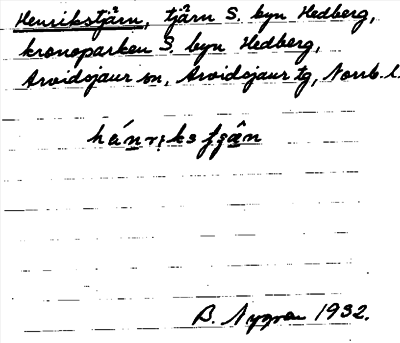 Henrikstjärn, tjärn S. byn Hedberg,
kronoparken S. byn Hedberg,
Arvidsjaur sn, Arvidsjaur tg, Norrb. l.
hánriks
B. Nygren 1932.